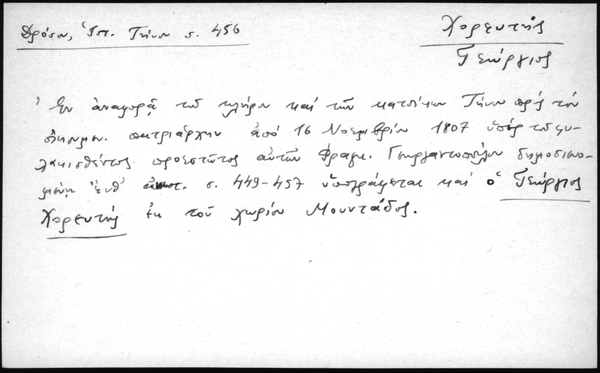 Δρόσου, Ἱστ. Τήνου σ. 456
Χορευτής
Γεώργιος
Ἐν ἀναφορᾷ τοῦ κλήρου καὶ τῶν κατοίκων Τήνου πρὸς τὸν
οἰκουμ. πατριάρχην ἀπὸ 16 Νοεμβρίου 1807 ὑπὲρ τοῦ φυ-
λακισθέντος προεστῶτος αὐτῶν Φραγκ. Γεωργαντοπούλου δημοσιευο-
μένῃ σ. 449-457 ὑπογράφεται καὶ ὁ Γεώργιος
Χορευτής ἐκ τοῦ χωρίου Μουντάδος.